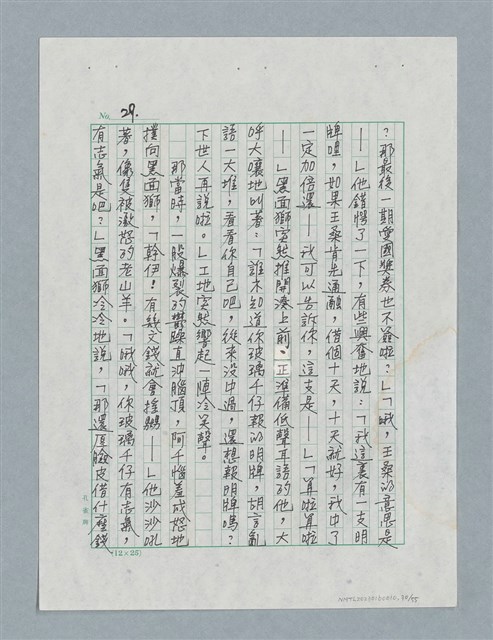 No. 29.
？那最後一期愛國獎券也不簽啦？」「哦，王桑的意思是
——」他錯愕了一下，有些興奮地說：「我這裏有一支明
牌哩，如果王桑肯先通融，借個十天，十天就好，我中了
一定加倍還——我可以告訴你，這支是——」「算啦算啦
——」黑面獅突然推開湊上前、正準備低聲耳語的他，大
呼大嚷地叫著：「誰不知道你玻璃千仔報的明牌，胡言亂
語一大堆，看看你自己吧，從來沒中過，還想報明牌嗎？
下世人再說啦。」工地突然響起一陣冷笑聲。
那當時，一股爆裂的鬱躁直沖腦頂，阿千惱羞成怒地
撲向黑面獅，「幹伊！有幾文錢就會搖擺——」他沙沙吼
著，像隻被激怒的老山羊。「哦哦，你玻璃千仔有志氣，
有志氣是吧？」黑面獅冷冷地說，「那還厚臉皮借什麼錢
(12×25)